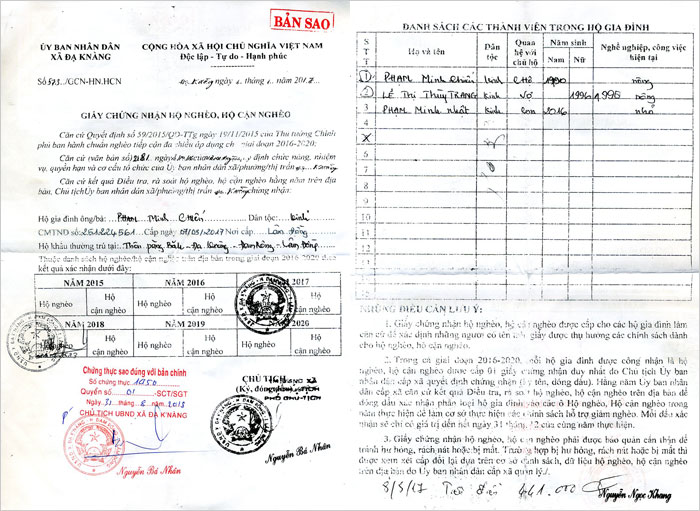 BẢN SAO
ỦY BAN NHÂN DÂN
XÃ ĐẠ KNÀNG
CỘNG HÒA XÃ HỘI CHỦ NGHĨA VIỆT NAM
Độc lập - Tự do - Hạnh phúc
/GCN-HN.HCN
GIẤY CHỨNG NHẬN HỘ NGHÈO, HỘ CẬN NGHÈO
Căn cứ Quyết định số 59/2015/QĐ-TTg ngày 19/11/2015 của Thủ tướng Chính
phủ ban hành chuẩn nghèo tiếp cận đa chiều áp dụng cho giai đoạn 2016-2020;
Căn cứ văn bản số y định chức năng, nhiệm
vụ, quyền hạn và cơ cấu tổ chức của Ủy ban nhân dân xã/phường/thị trấn
Căn cứ kết quả Điều tra, rà soát hộ nghèo, hộ cận nghèo hằng năm trên địa
bàn, Chủ tịch Ủy ban nhân dân xã/phường/thị trấn chứng nhận:
Hộ gia đình ông/bà: PHẠM Minh Chiến Dân tộc: kinh
CMTND số: 251224561 Cấp ngày 07/03/2017 Nơi cấp: Lâm Đồng
Hộ khẩu thường trú tại: Thôn Lâm Đồng
Thuộc danh sách hộ nghèo/hộ cận nghèo trên địa bàn trong giai đoạn 2016-2020 theo
kết quả xác nhận dưới đây:
NĂM 2015 NĂM 2016 2017
Hộ nghèo Hộ cận nghèo Hộ nghèo Hộ cận nghèo Hộ nghèo Hộ cận nghèo
2018 NĂM 2019 NĂM 2020
Hộ nghèo Hộ cận nghèo Hộ nghèo Hộ cận nghèo Hộ nghèo Hộ cận nghèo
Chứng thực sao đúng với bản chính
Số chứng thực 1050
Quyển số: 01 -SCT/SGT
Ngày 31 tháng 8 năm 2018
CHỦ TỊCH UBND XÃ ĐẠ K'NÀNG
Nguyễn Bá Nhân
CHỦ TỊCH
(Ký, đóng
PHÓ CHỦ TỊCH
Nguyễn Bá Nhân
DANH SÁCH CÁC THÀNH VIÊN TRONG HỘ GIA ĐÌNH
STT Họ và tên Dân tộc Quan hệ với chủ hộ Năm sinh Nam Nữ Nghề nghiệp, công việc hiện tại
1 PHẠM Minh Chiến kinh CHỦ 1990 nông
2 LÊ Thị Thùy TRANG kinh Vợ 1995 nông
3 PHẠM Minh Nhất kinh Con 2016 nhỏ
NHỮNG ĐIỀU CẦN LƯU Ý:
1. Giấy chứng nhận hộ nghèo, hộ cận nghèo được cấp cho các hộ gia đình làm
căn cứ để xác định những người có tên được thụ hưởng các chính sách dành
cho hộ nghèo, hộ cận nghèo.
2. Trong cả giai đoạn 2016-2020, mỗi hộ gia đình được công nhận là hộ
nghèo, hộ cận nghèo được cấp 01 giấy chứng nhận duy nhất do Chủ tịch Ủy ban
nhân dân cấp xã quyết định chứng nhận (ký tên, đóng dấu). Hằng năm Ủy ban nhân
dân cấp xã căn cứ kết quả Điều tra, rà soát hộ nghèo, hộ cận nghèo trên địa bàn để
đóng dấu xác nhận phân loại hộ gia đình vào các ô Hộ nghèo, Hộ cận nghèo trong
năm thực hiện để làm cơ sở thực hiện các chính sách hỗ trợ giảm nghèo. Mỗi dấu xác
nhận sẽ chỉ có giá trị đến hết ngày 31 tháng 12 của cùng năm thực hiện.
3. Giấy chứng nhận hộ nghèo, hộ cận nghèo phải được bảo quản cẩn thận để
tránh hư hỏng, rách nát hoặc bị mất. Trường hợp bị hư hỏng, rách nát hoặc bị mất thì
được xem xét cấp đổi lại dựa trên cơ sở danh sách, dữ liệu hộ nghèo, hộ cận nghèo
trên địa bàn do Ủy ban nhân dân cấp xã quản lý./.
441.000
Nguyễn Ngọc Khang